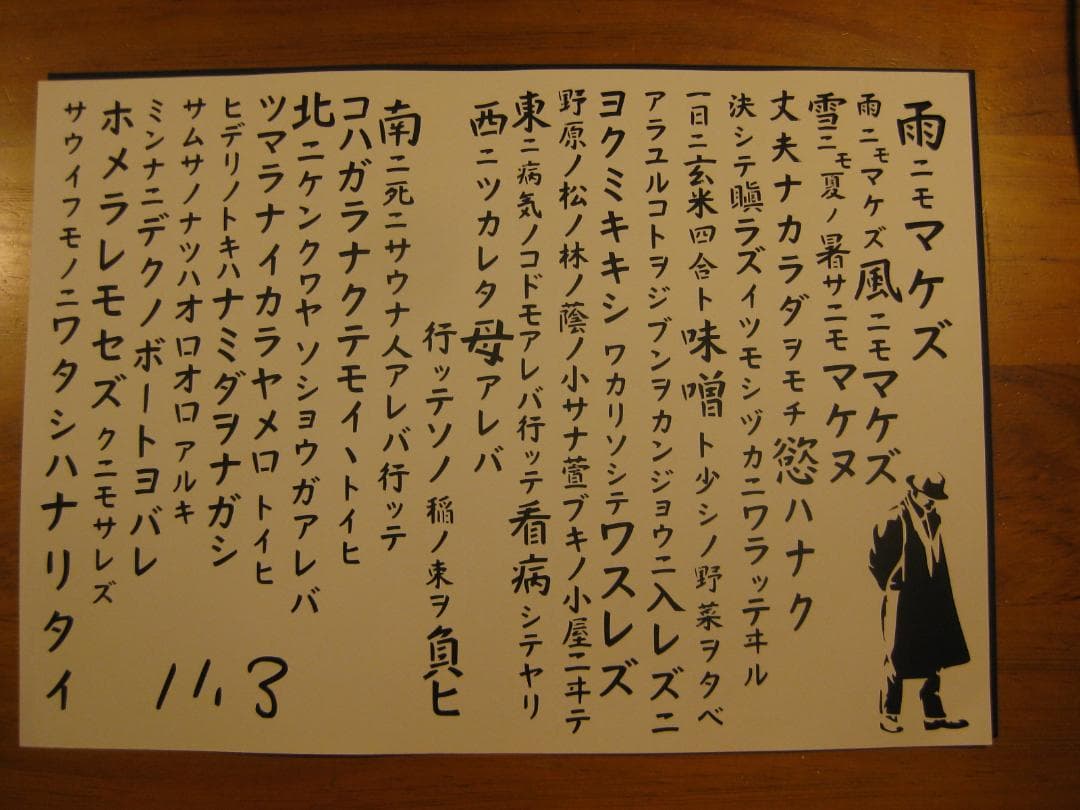 雨ニモマケズ
雨ニモマケズ風ニモマケズ
雪ニモ夏ノ暑サニモマケヌ
丈夫ナカラダヲモチ慾ハナク
決シテ瞋ラズイツモシヅカニワラッテヰル
一日ニ玄米四合ト味噌ト少シノ野菜ヲタベ
アラユルコトヲジブンヲカンジョウニ入レズニ
ヨクミキキシワカリソシテワスレズ
野原ノ松ノ林ノ蔭ノ小サナ萱ブキノ小屋ニヰテ
東ニ病気ノコドモアレバ行ッテ看病シテヤリ
西ニツカレタ母アレバ
行ッテソノ稲ノ束ヲ負ヒ
南ニ死ニサウナ人アレバ行ッテ
コハガラナクテモイヽトイヒ
北ニケンクワヤソショウガアレバ
ツマラナイカラヤメロトイヒ
ヒデリノトキハナミダヲナガシ
サムサノナツハオロオロアルキ
ミンナニデクノボートヨバレ
ホメラレモセズクニモサレズ
サウイフモノニワタシハナリタイ
11.3